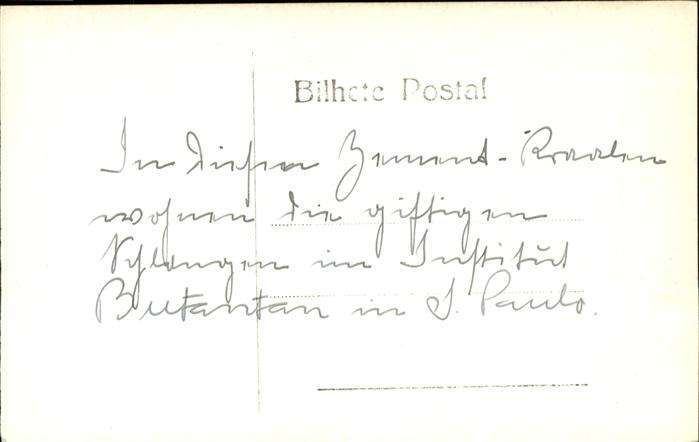 Bilhete Postal
In diesen Zement-Kraalen
wohnen die giftigen
Schlangen im Institut
Butantan in S. Paulo.